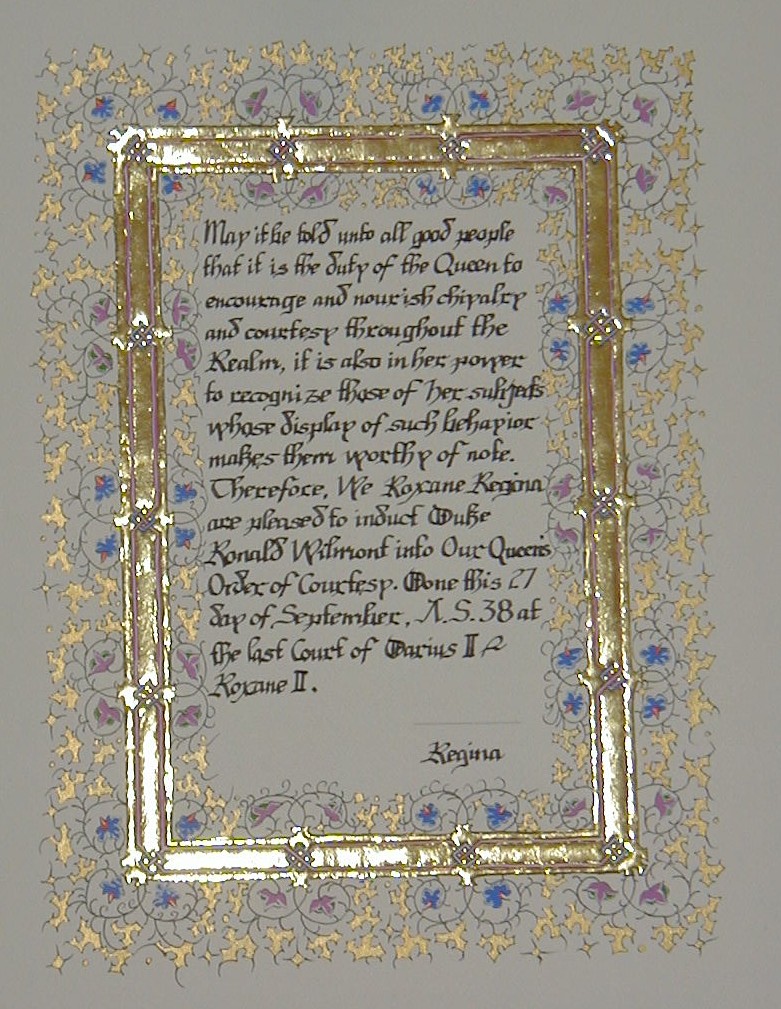 May it be told unto all good people
that it is the duty of the Queen to
encourage and nourish chivalry
and courtesy throughout the
Realm, it is also in her power
to recognize those of her subjects
whose display of such behavior
makes them worthy of note.
Therefore, We Roxane Regina
are pleased to induct Duke
Ronald Wilmont into Our Queen's
Order of Courtesy. Done this 27
day of September, A.S. 38 at
the last Court of Darius II &
Roxane II.
Regina